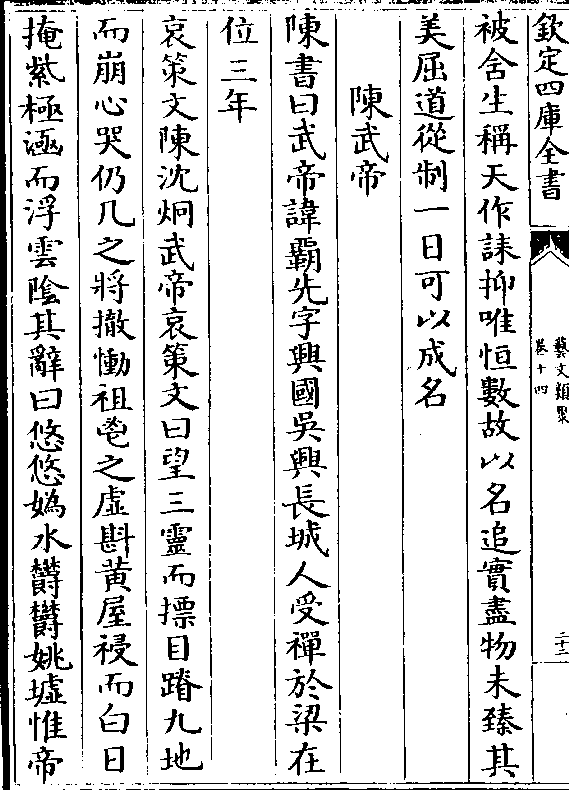 欽定四庫全書
藝文類聚
卷十四
二十二
被含生稱天作誄抑唯恒數故以名追實盡物未臻其
美屈道從制一日可以成名
陳武帝
陳書曰武帝諱霸先字興國吳興長城人受禪於梁在
位三年
哀策文陳沈炯武帝哀策文曰望三靈而摽目蹐九地
而崩心哭仍几之將撤慟祖鬯之虛斟黄屋祲而白日
掩紫極𤀹而浮雲陰其辭曰悠悠媯水欝欝姚墟惟帝